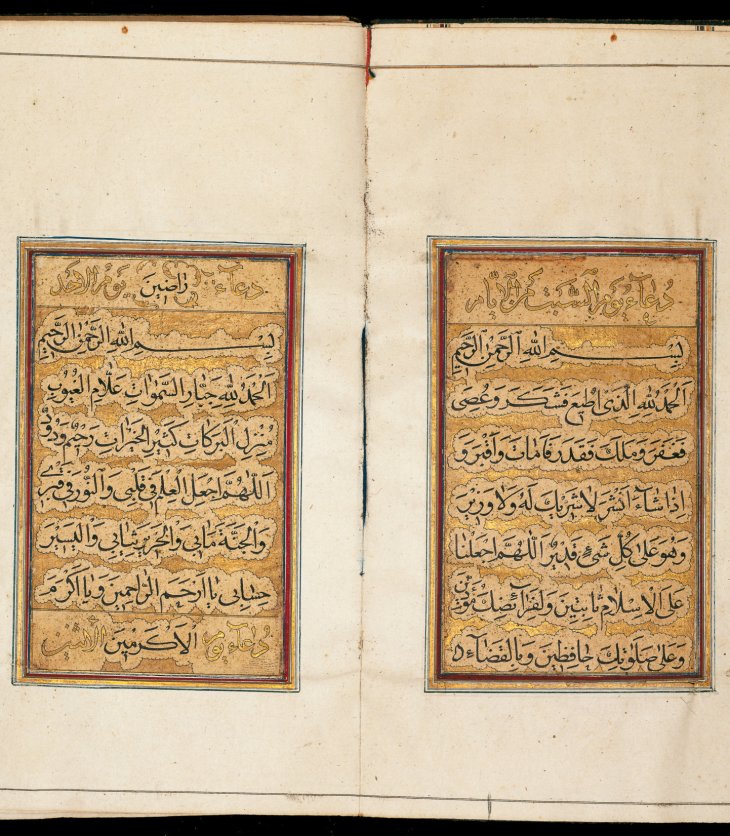 دُعآء يوم السبت الايام
بِسْمِ اللهِ الرَّحْمٰنِ الرَّحِيمِ
اَلْحَمْدُ لِلهِ الَّذى اُطيعَ فَشَكَرَ وَعُصِىَ
فَغَفَرَ وَمَلَكَ فَقَدَرَ فَاَمَاتَ وَاَقْبَرَ وَ
اِذا شآءَ اَنْشَرَ لا شَريكَ لَهُ وَلا وَزيرَ
وَهُوَ عَلىٰ كُلِّ شَىْءٍ قَديرٌ اَللّٰهُمَّ اجْعَلْنا
عَلَى الْاِسْلامِ ثابِتينَ وَلِفَرآئِضِكَ مُؤَدّينَ
وَعَلىٰ صَلوٰتِكَ حافِظينَ وَبِالْقَضآءِ
دعآء راضينَ يوم الاحد
بِسْمِ اللهِ الرَّحْمٰنِ الرَّحِيمِ
اَلْحَمْدُ لِلهِ جَبّارِ السَّمٰواتِ عَلّامِ الْغُيُوبِ
مُنْزِلِ الْبَرَكاتِ كَثيرِ الْخَيْراتِ رَحيمٌ وَدُودٌ
اَللّٰهُمَّ اجْعَلِ الْعِلْمَ فى قَلْبى وَالنُّورَ فى قَبْرى
وَالْجَنَّةَ مَاٰبى وَالْحَريرَ ثِيابى وَالْيَسيرَ
حِسابى يا اَرْحَمَ الرّاحِمينَ وَيا اَكْرَمَ
دعآء يوم الْاَكْرَمينَ الاثنين